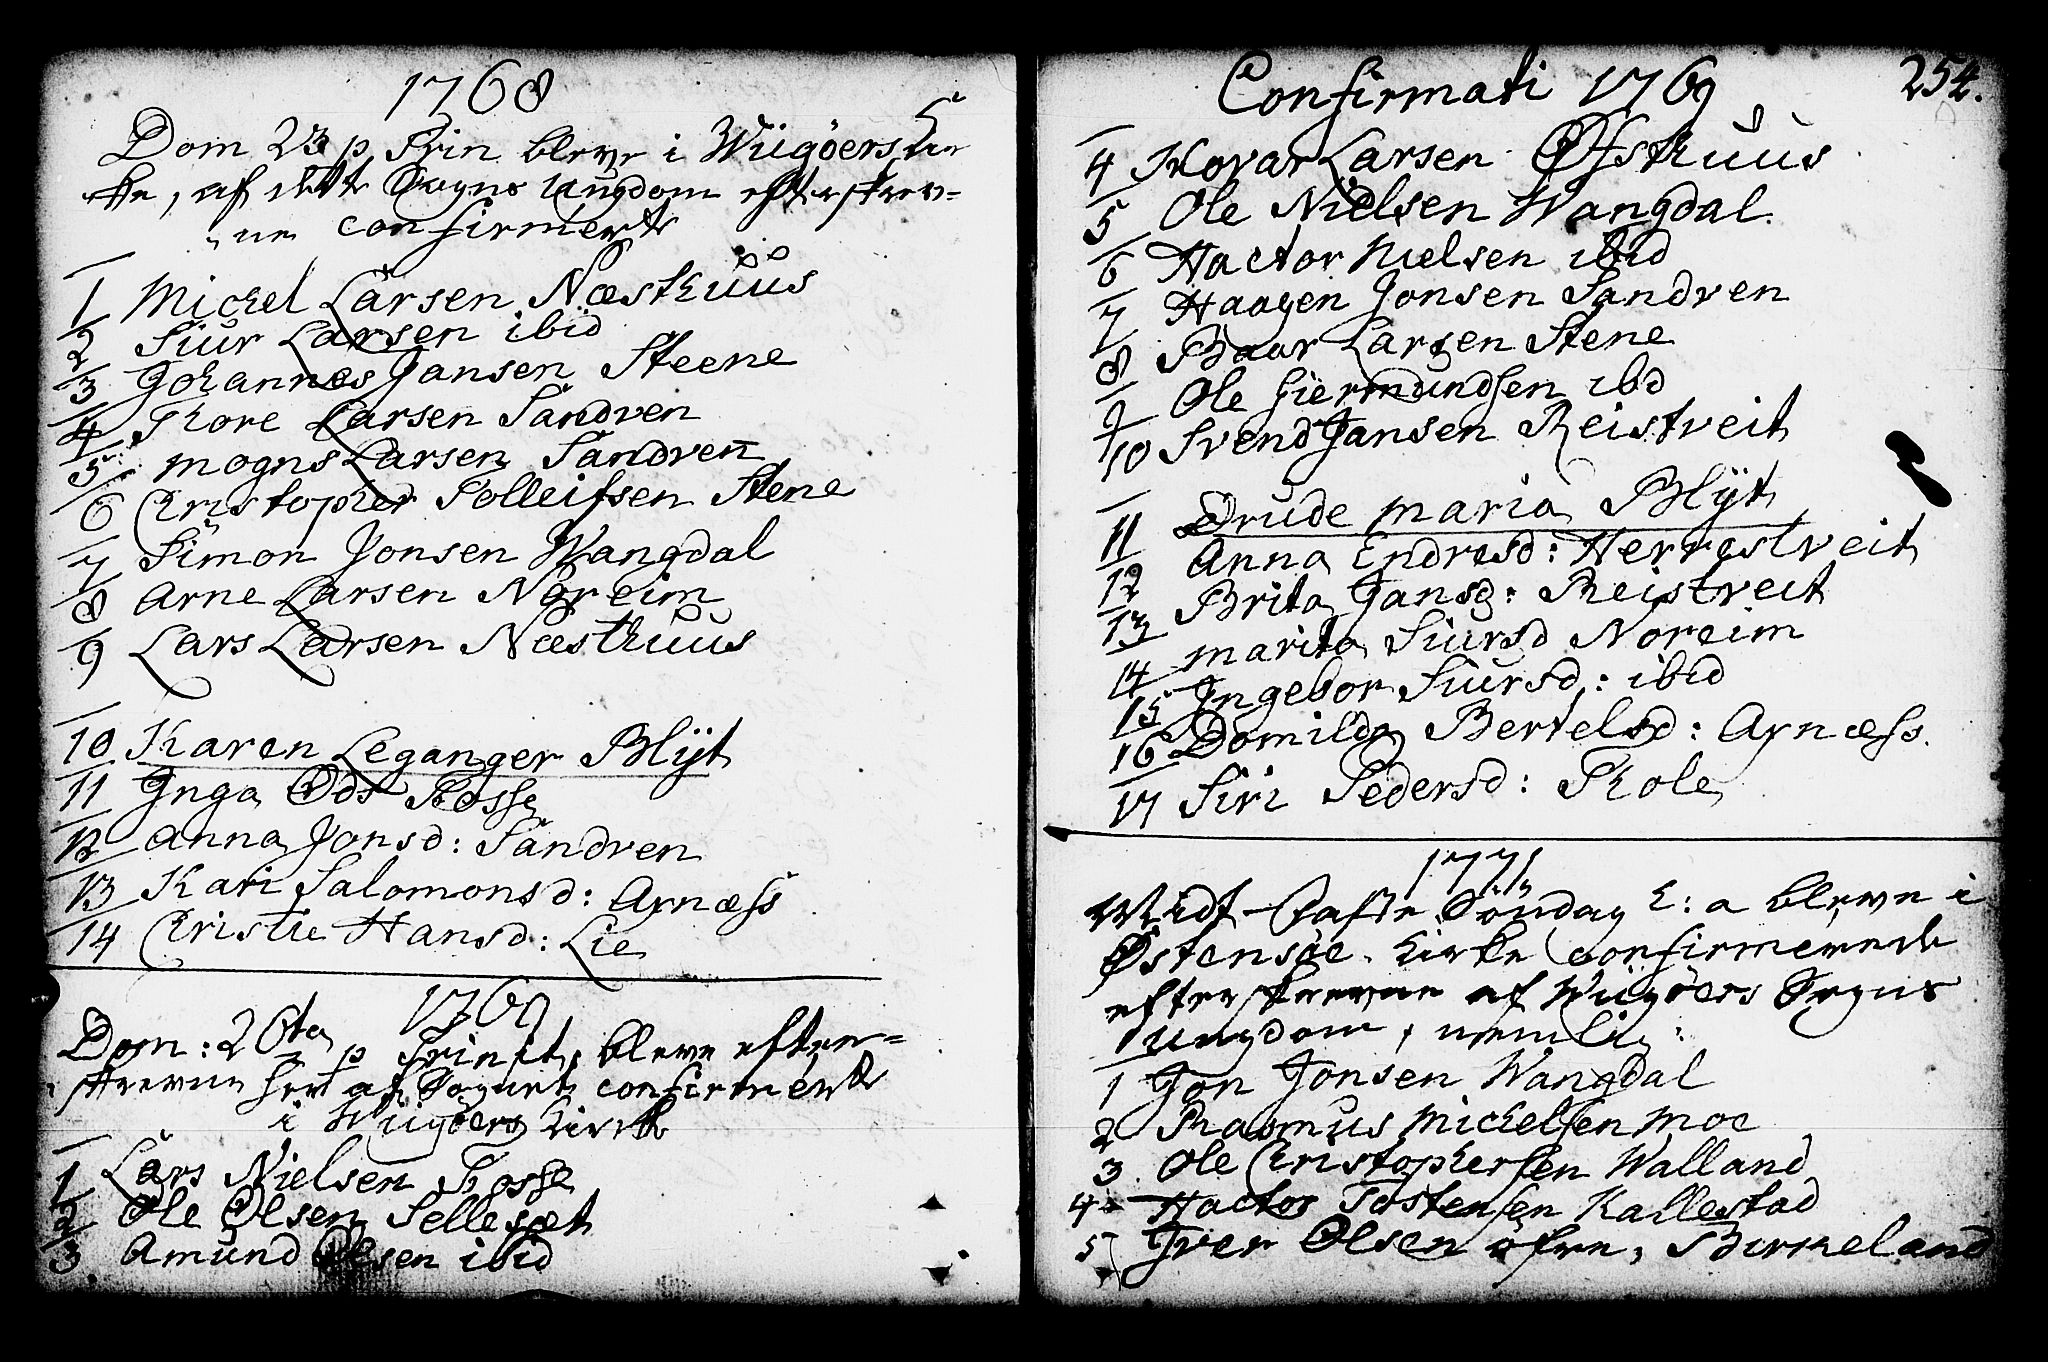 1768
Dom 23 p Trin bleve i Wiigöers Kir
ke, af dette Sogns Ungdom efterskrev-
ne confirmert
1 Michel Larsen Næsthuus
2 Siur Larsen ibid
3 Johannes Jansen Steene
4 Thore Larsen Sandven
5 Mogns Larsen Sandven
6 Christopher Tolleifsen Stene
7 Simon Jonsen Wangdal
8 Arne Larsen Noreim
9 Lars Larsen Næsthuus
10 Karen Leganger Blÿt
11 Inga Ods Fosse
12 Anna Jonsd: Sandven
13 Kari Salomonsd: Axnæss
14 Christie Hansd: Lie
1769
Dom: 26ta p Trinit, bleve efter-
skrevne her af Sognet confirmert
i Wiigöers Kirke
1 Lars Nielsen Fosse
2 Ole Olsen Sellesæt
3 Amund Olsen ibid
Confirmati 1769
254.
4 Hovar Larsen Øfsthuus
5 Ole Nielsen Wangdal.
6 Hactor Nielsen ibid
7 Haagen Jonsen Sandven
8 Baar Larsen Stene
9 Ole Giermundsen ibd
10 Svend Jansen Reistveit
11 Drude Maria Blÿt
12 Anna Endresd: Herrestveit
13 Brita Jansd: Reistveit
14 Marita Siursd Noreim
15 Ingebor Siursd: ibid
16 Domilda Bertelsd: Axnæss.
17 Siri Pedersd: Skole
1771
Midt-Faste Söndag h: a bleve i
Østensöe Kirke Confirmerede
efterskrevne af Wiigöers Sogns
Ungdom, nemlig:
1 Jon Jonsen Wangdal
2 Rasmus Michelsen Moe
3 Ole Christophersen Walland
4 Hactor Tostensen Kallestad
5 Iver Olsen öfre, Birkeland